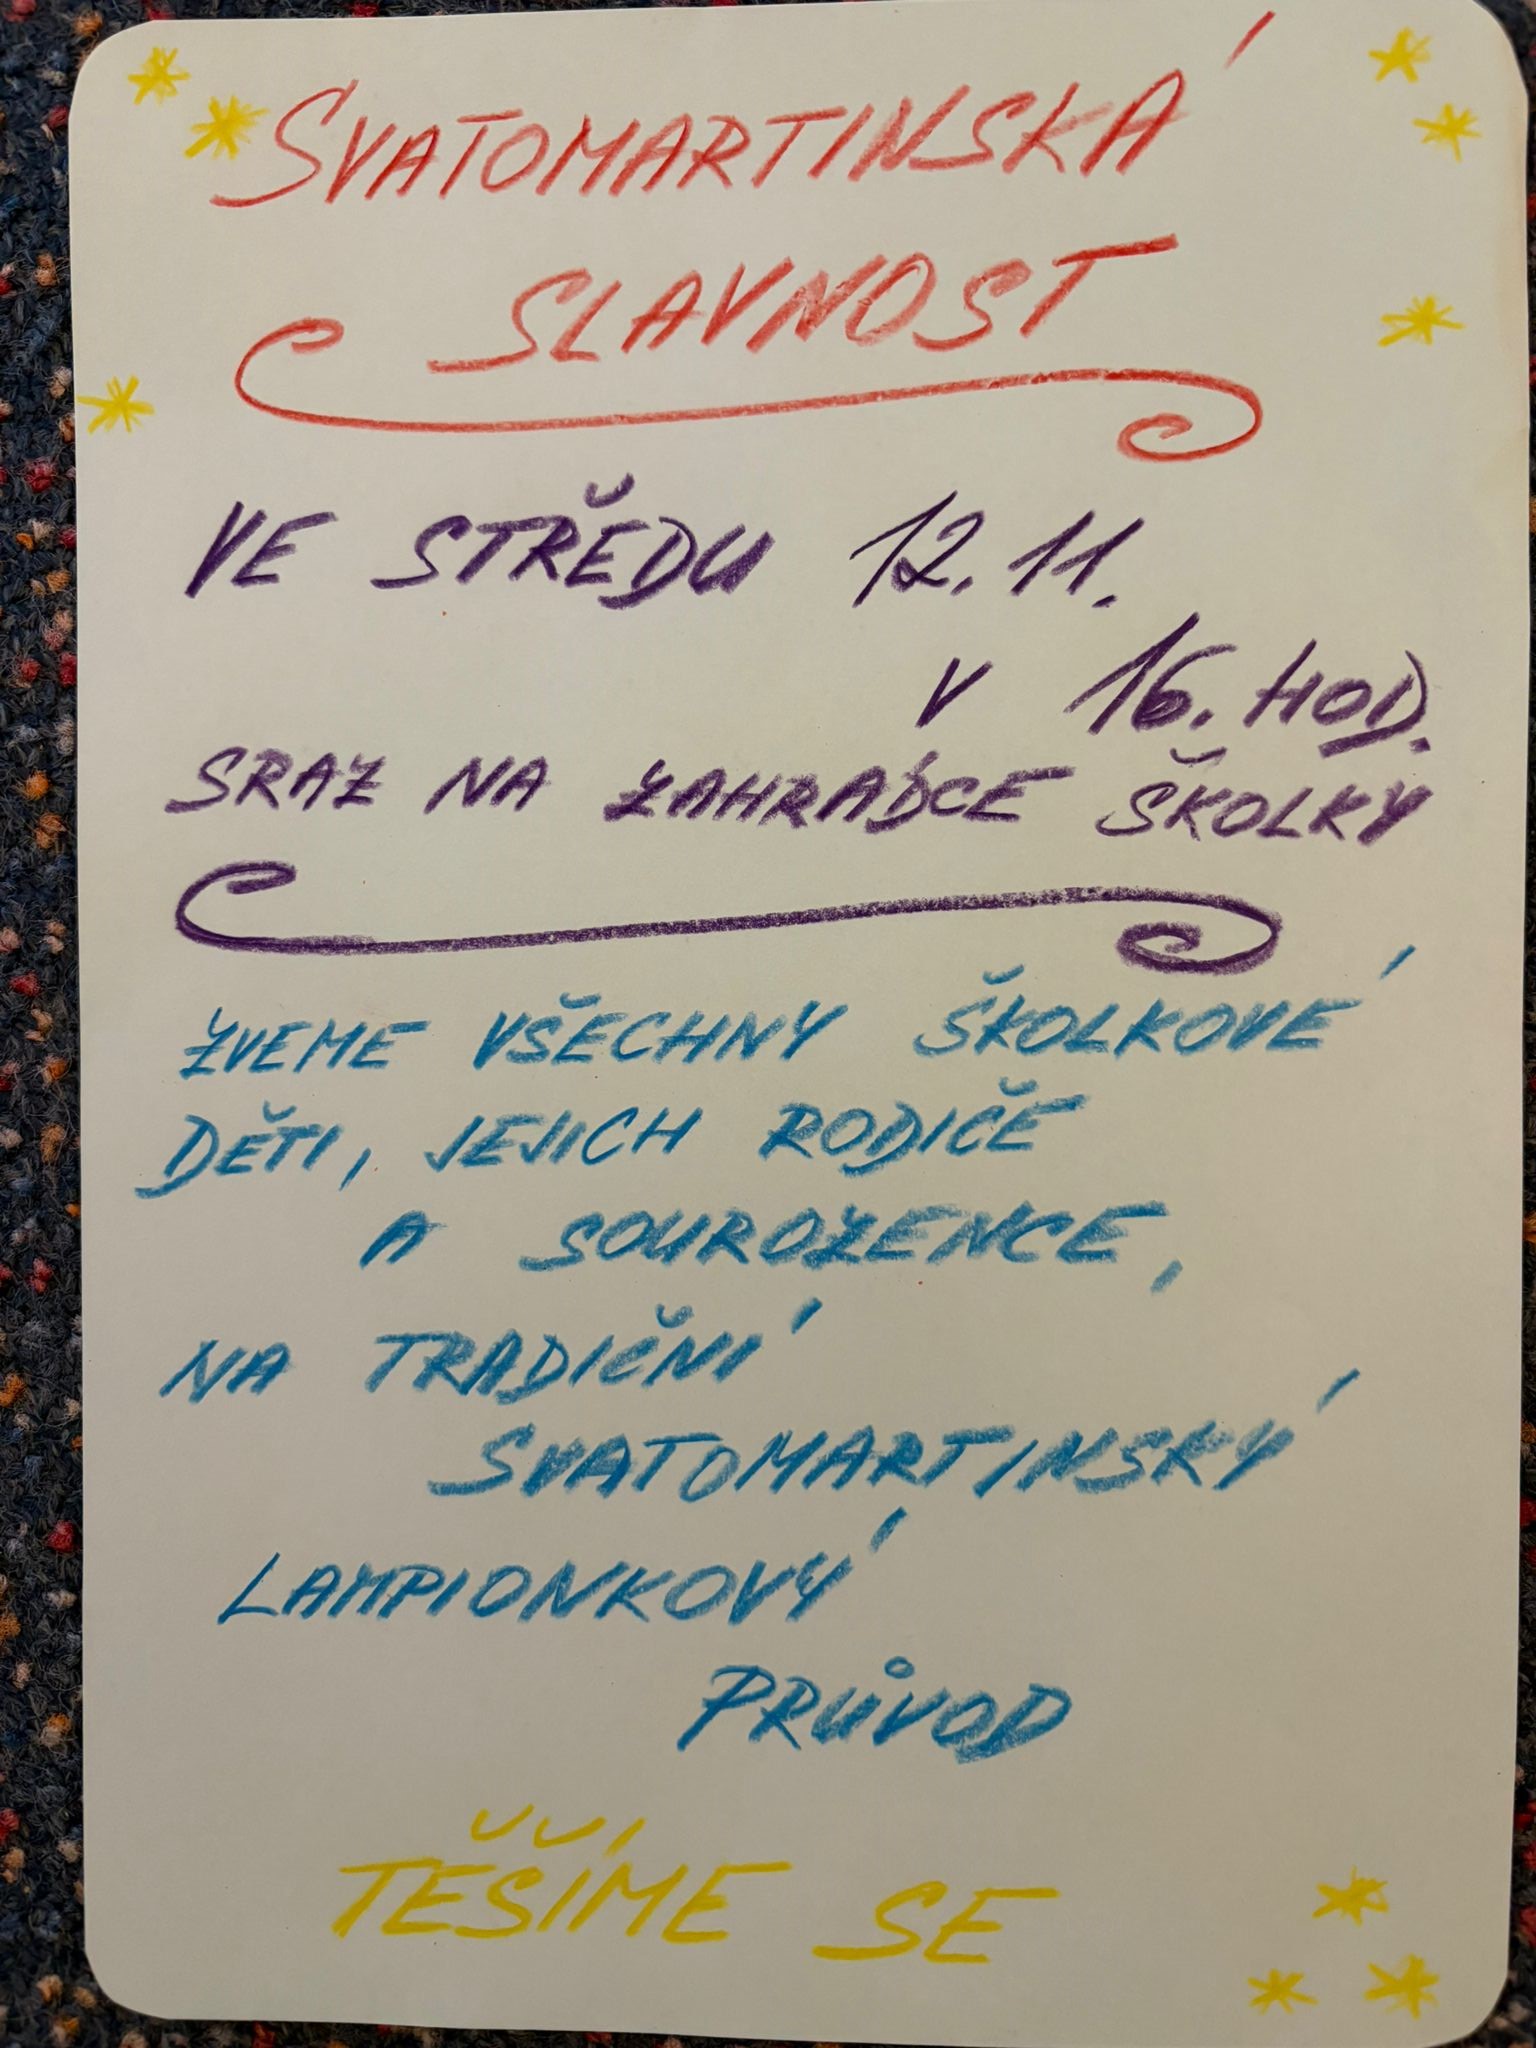 SVATOMARTINSKÁ
SLAVNOST
VE STŘEDU 12.11.
V 16. HOD.
SRAZ NA ZAHRÁDCE ŠKOLKY
ZVEME VŠECHNY ŠKOLKOVÉ
DĚTI, JEJICH RODIČE
A SOUROZENCE,
NA TRADIČNÍ
SVATOMARTINSKÝ
LAMPIONKOVÝ
PRŮVOD
TĚŠÍME SE